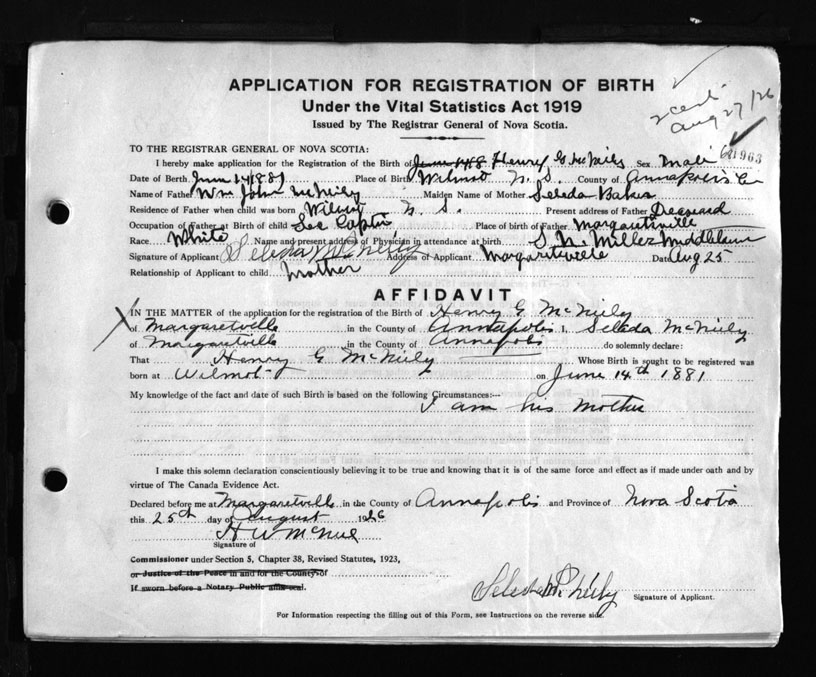 APPLICATION FOR REGISTRATION OF BIRTH
Under the Vital Statistics Act 1919
Issued by The Registrar General of Nova Scotia.
Aug 27/26
TO THE REGISTRAR GENERAL OF NOVA SCOTIA:
I hereby make application for the Registration of the Birth of Henry G McNeily Sex Male
Date of Birth June 14 1881 Place of Birth Wilmot N. S. County of Annapolis Co
Name of Father Wm John McNeily Maiden Name of Mother Seleda Baker
Residence of Father when child was born Wilmot N. S. Present address of Father Deceased
Occupation of Father at Birth of child Sea Captin Place of birth of Father Margaretville
Race White Name and present address of Physician in attendance at birth S. N. Miller Middleton
Signature of Applicant Seleda McNeily Address of Applicant Margaretville Date Aug 25
Relationship of Applicant to child Mother
AFFIDAVIT
X
IN THE MATTER of the application for the registration of the Birth of Henry G McNeily
of Margaretville in the County of Annapolis I, Seleda McNeily
of Margaretville in the County of Annapolis do solemnly declare:
That Henry G McNeily Whose Birth is sought to be registered was
born at Wilmot on June 14th 1881
My knowledge of the fact and date of such Birth is based on the following Circumstances:—
I am his Mother
I make this solemn declaration conscientiously believing it to be true and knowing that it is of the same force and effect as if made under oath and by
virtue of The Canada Evidence Act.
Declared before me at Margaretville in the County of Annapolis and Province of Nova Scotia
this 25th day of August 1926
H W McNeil
Signature of
Commissioner under Section 5, Chapter 38, Revised Statutes, 1923,
or Justice of the Peace in and for the County of
If sworn before a Notary Public affix seal.
Seleda McNeily
Signature of Applicant.
For Information respecting the filling out of this Form, see Instructions on the reverse side.